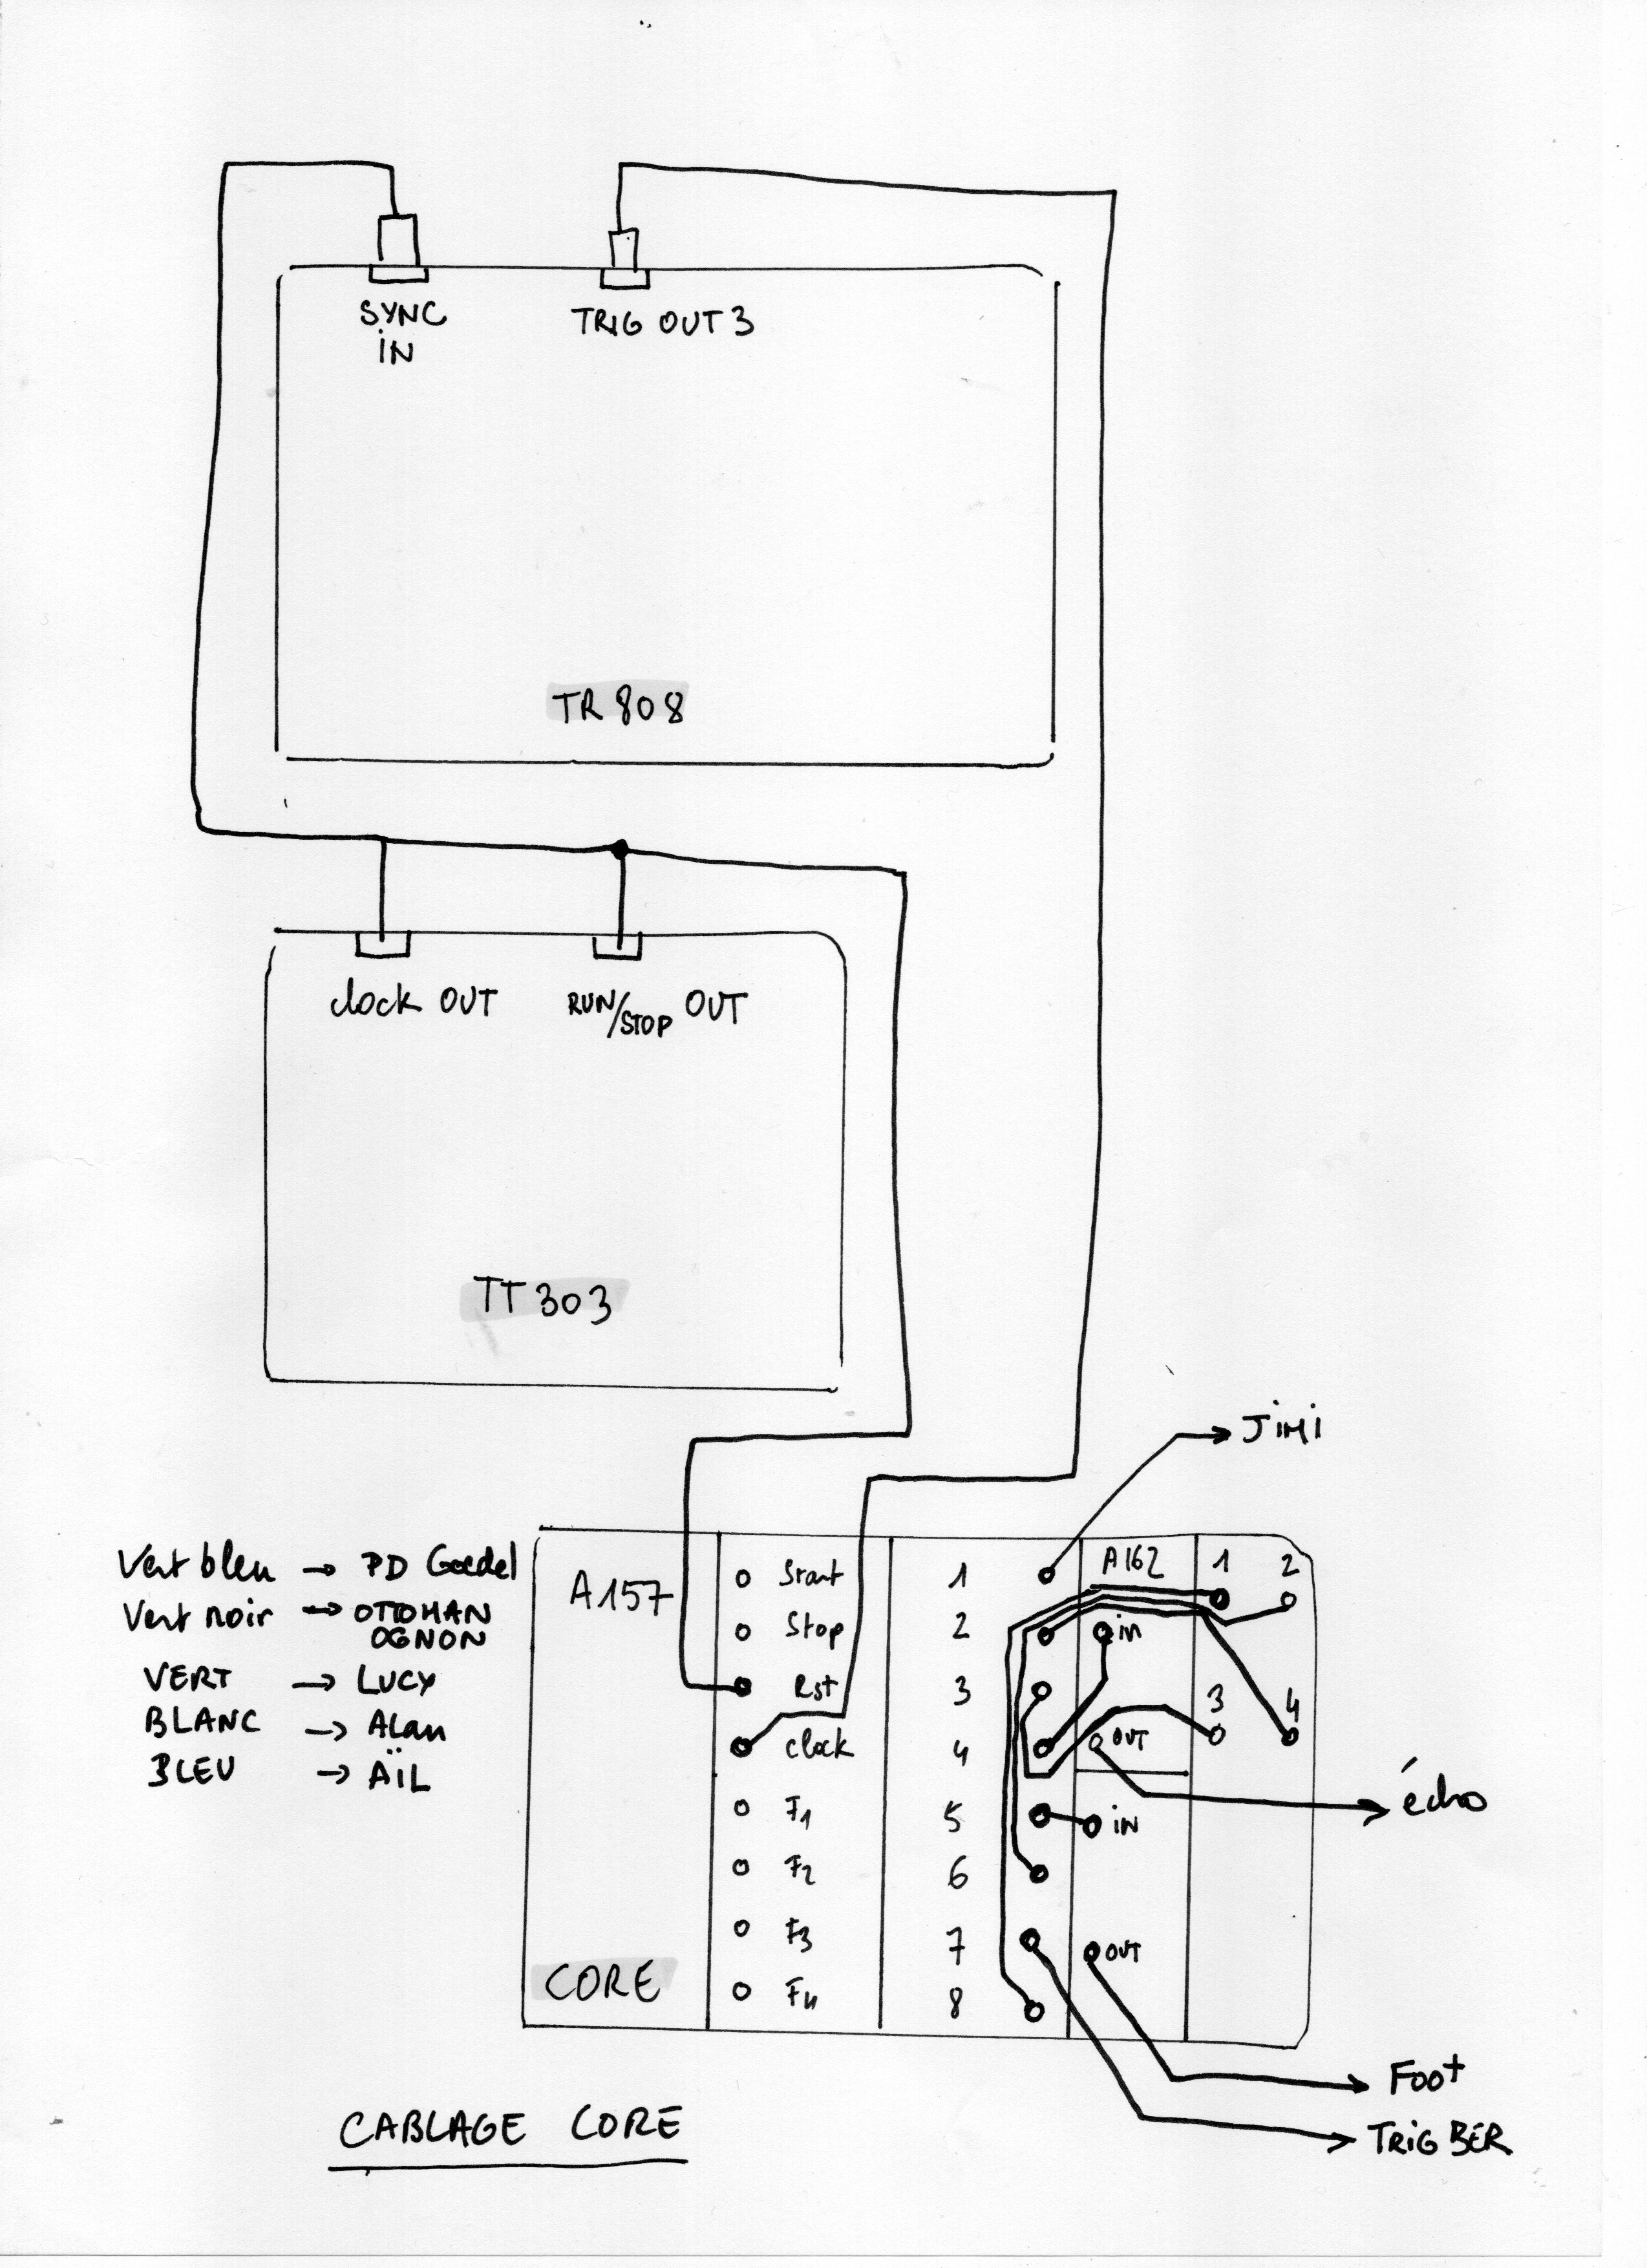 SYNC
IN
TRIG OUT 3
TR 808
clock OUT
RUN/STOP OUT
TT 303
Jimi
Vert bleu → PD Goedel
Vert noir → OTTOMAN
OGNON
VERT → LUCY
BLANC → Alan
BLEU → AÏL
A157
CORE
Start
Stop
Rst
clock
F1
F2
F3
F4
1
2
3
4
5
6
7
8
A162
in
OUT
iN
OUT
1 2
3 4
écho
Foot
TRiG BER
CABLAGE CORE